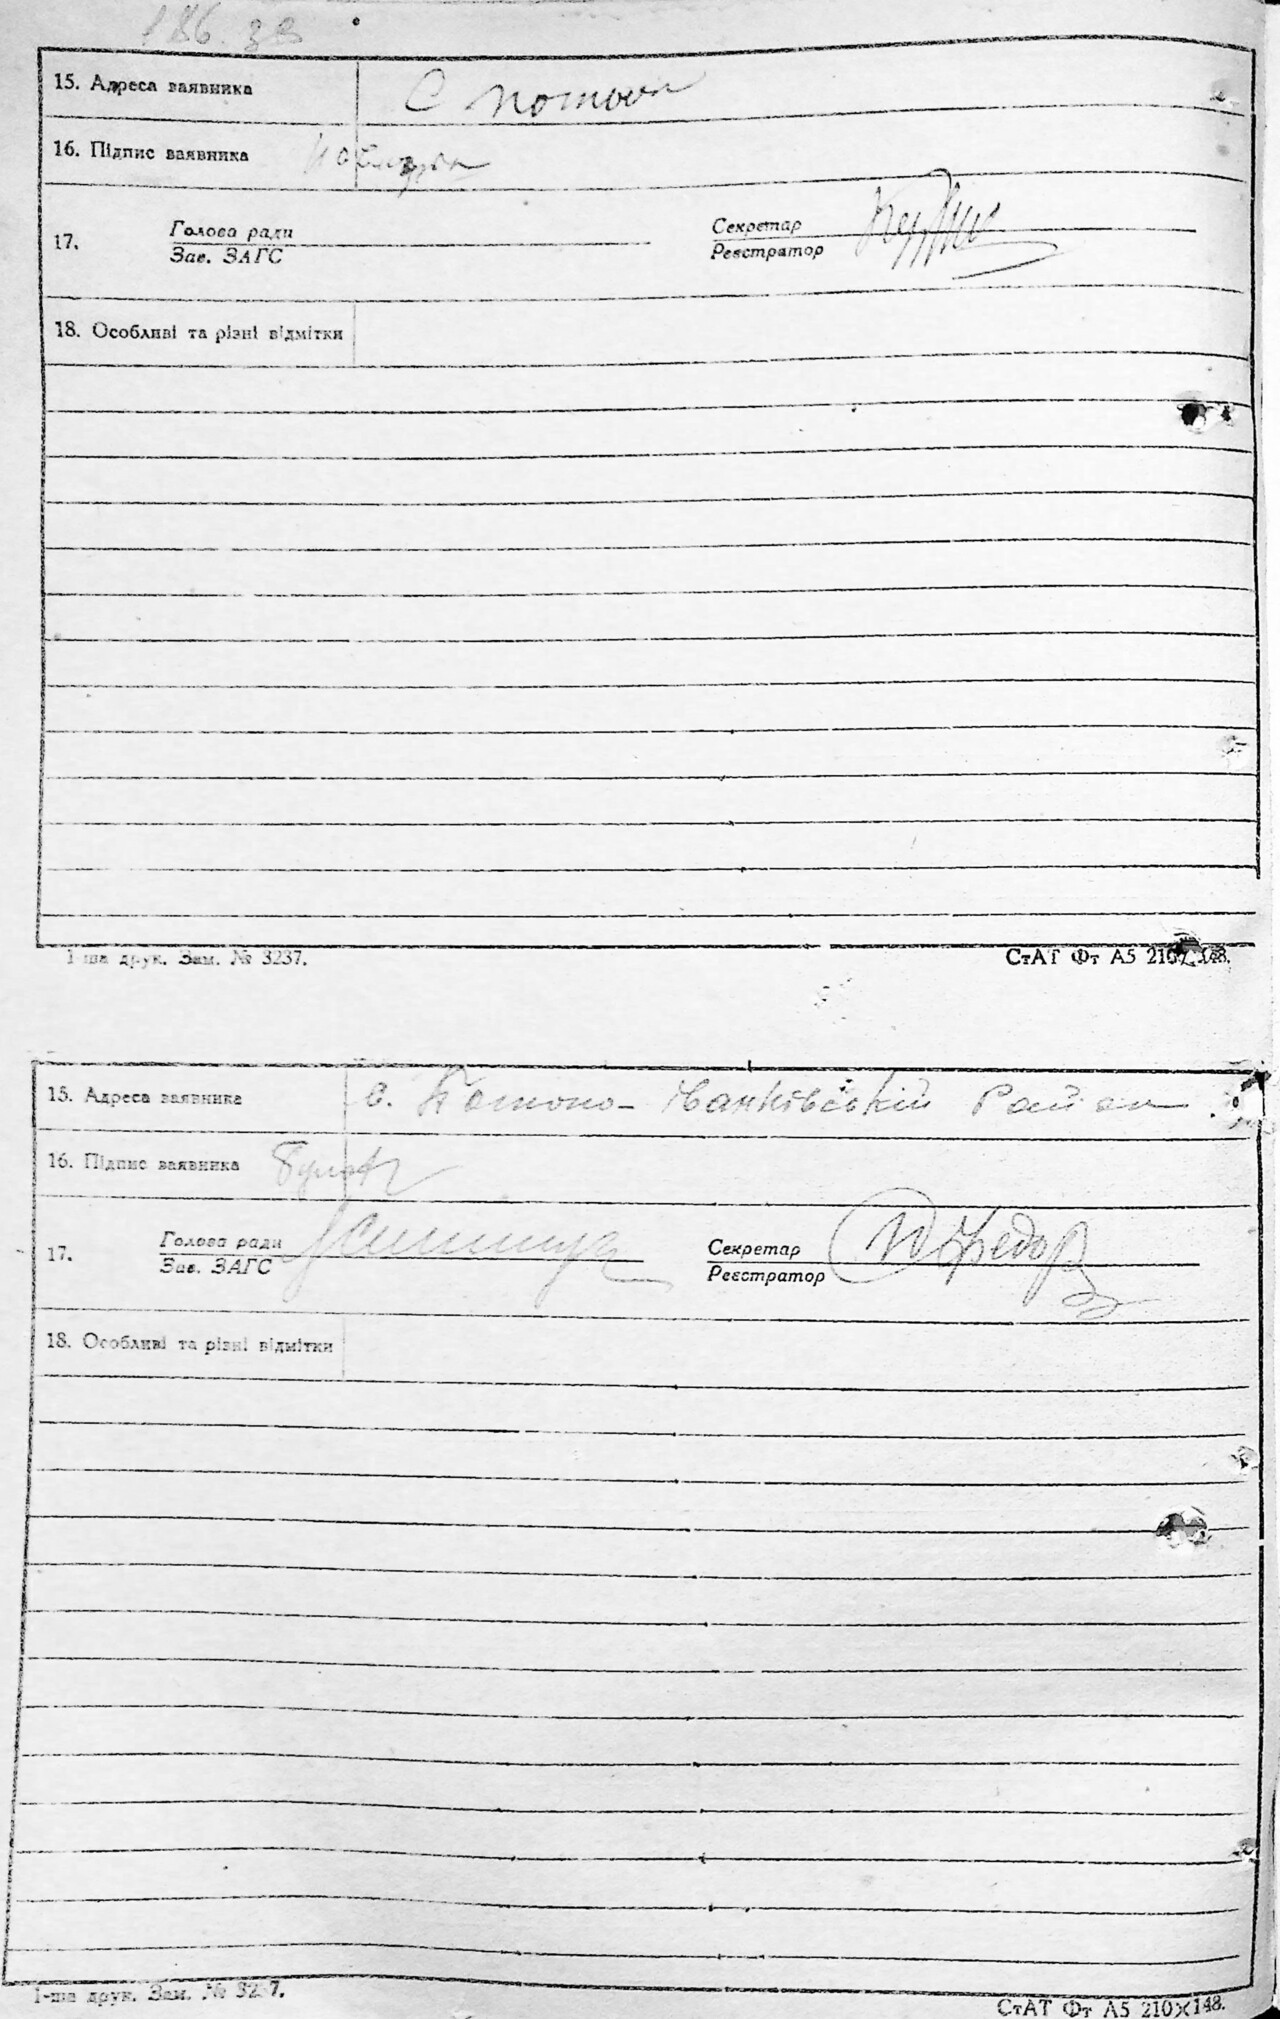 186. зв
15. Адреса заявника С Потоки
16. Підпис заявника
Голова ради Секретар
17.
Зав. ЗАГС Реєстратор
18. Особливі та різні відмітки
1-ша друк. Зам. № 3237. СтАТ Фт А5 210×148.
15. Адреса заявника с. Іванківській Район
16. Підпис заявника
Голова ради Секретар
17.
Зав. ЗАГС Реєстратор
18. Особливі та різні відмітки
1-ша друк. Зам. № 3237. СтАТ Фт А5 210×148.